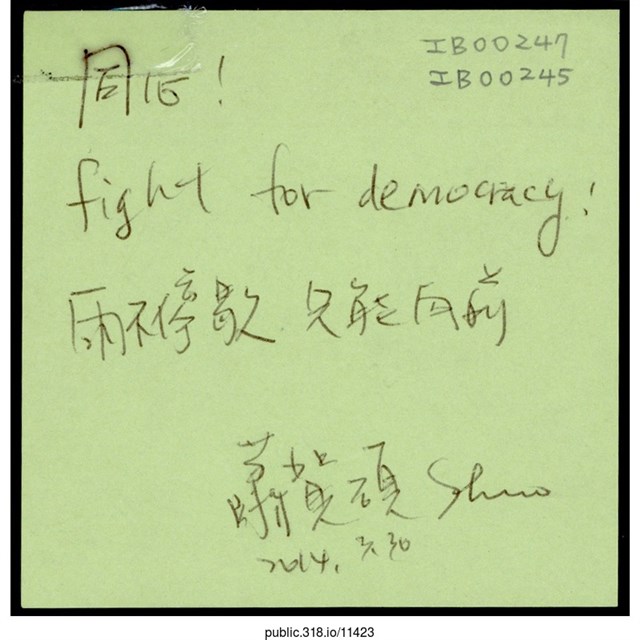 IB00247
IB00245
同伍!
fight for democracy!
雨不停歇 只能向前
蕭賀碩 Shuo
2014. 3. 30
public.318.io/11423